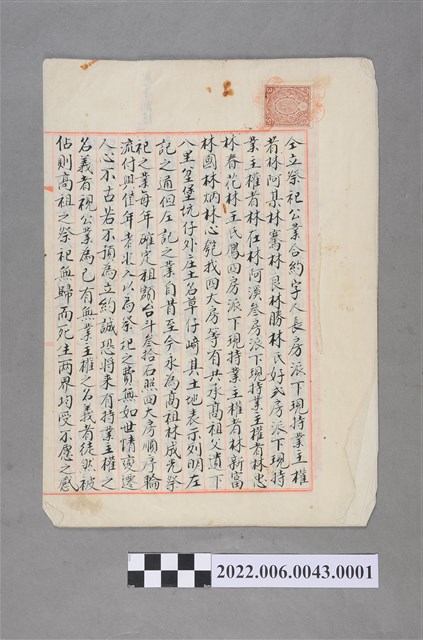 仝立祭祀公業合約字人長房派下現持業主權
者林阿集林騫林良林勝林氏好弍房派下現持
業主權者林在林阿漢叁房派下現持業主權者林忠
林春花林王氏鳳四房派下現持業主權者林新富
林國林炳林心匏找四大房等有共承高祖父遺下
八里坌堡坑仔外庄土名草仔崎其土地表示列明左
記之通但左記之業自昔至今永為高祖林成光祭
祀之業每年確定租額台斗叁拾石照四大房順序輪
流付與值年者收入以為祭祀之費無如世情變遷
人心不古若不預為立約誠恐將來有持業主權之
名義者視公業為己有無業主權之名義者徒然被
佔則高祖之祭祀無歸而死生兩界均受不愿之感
2022.006.0043.0001